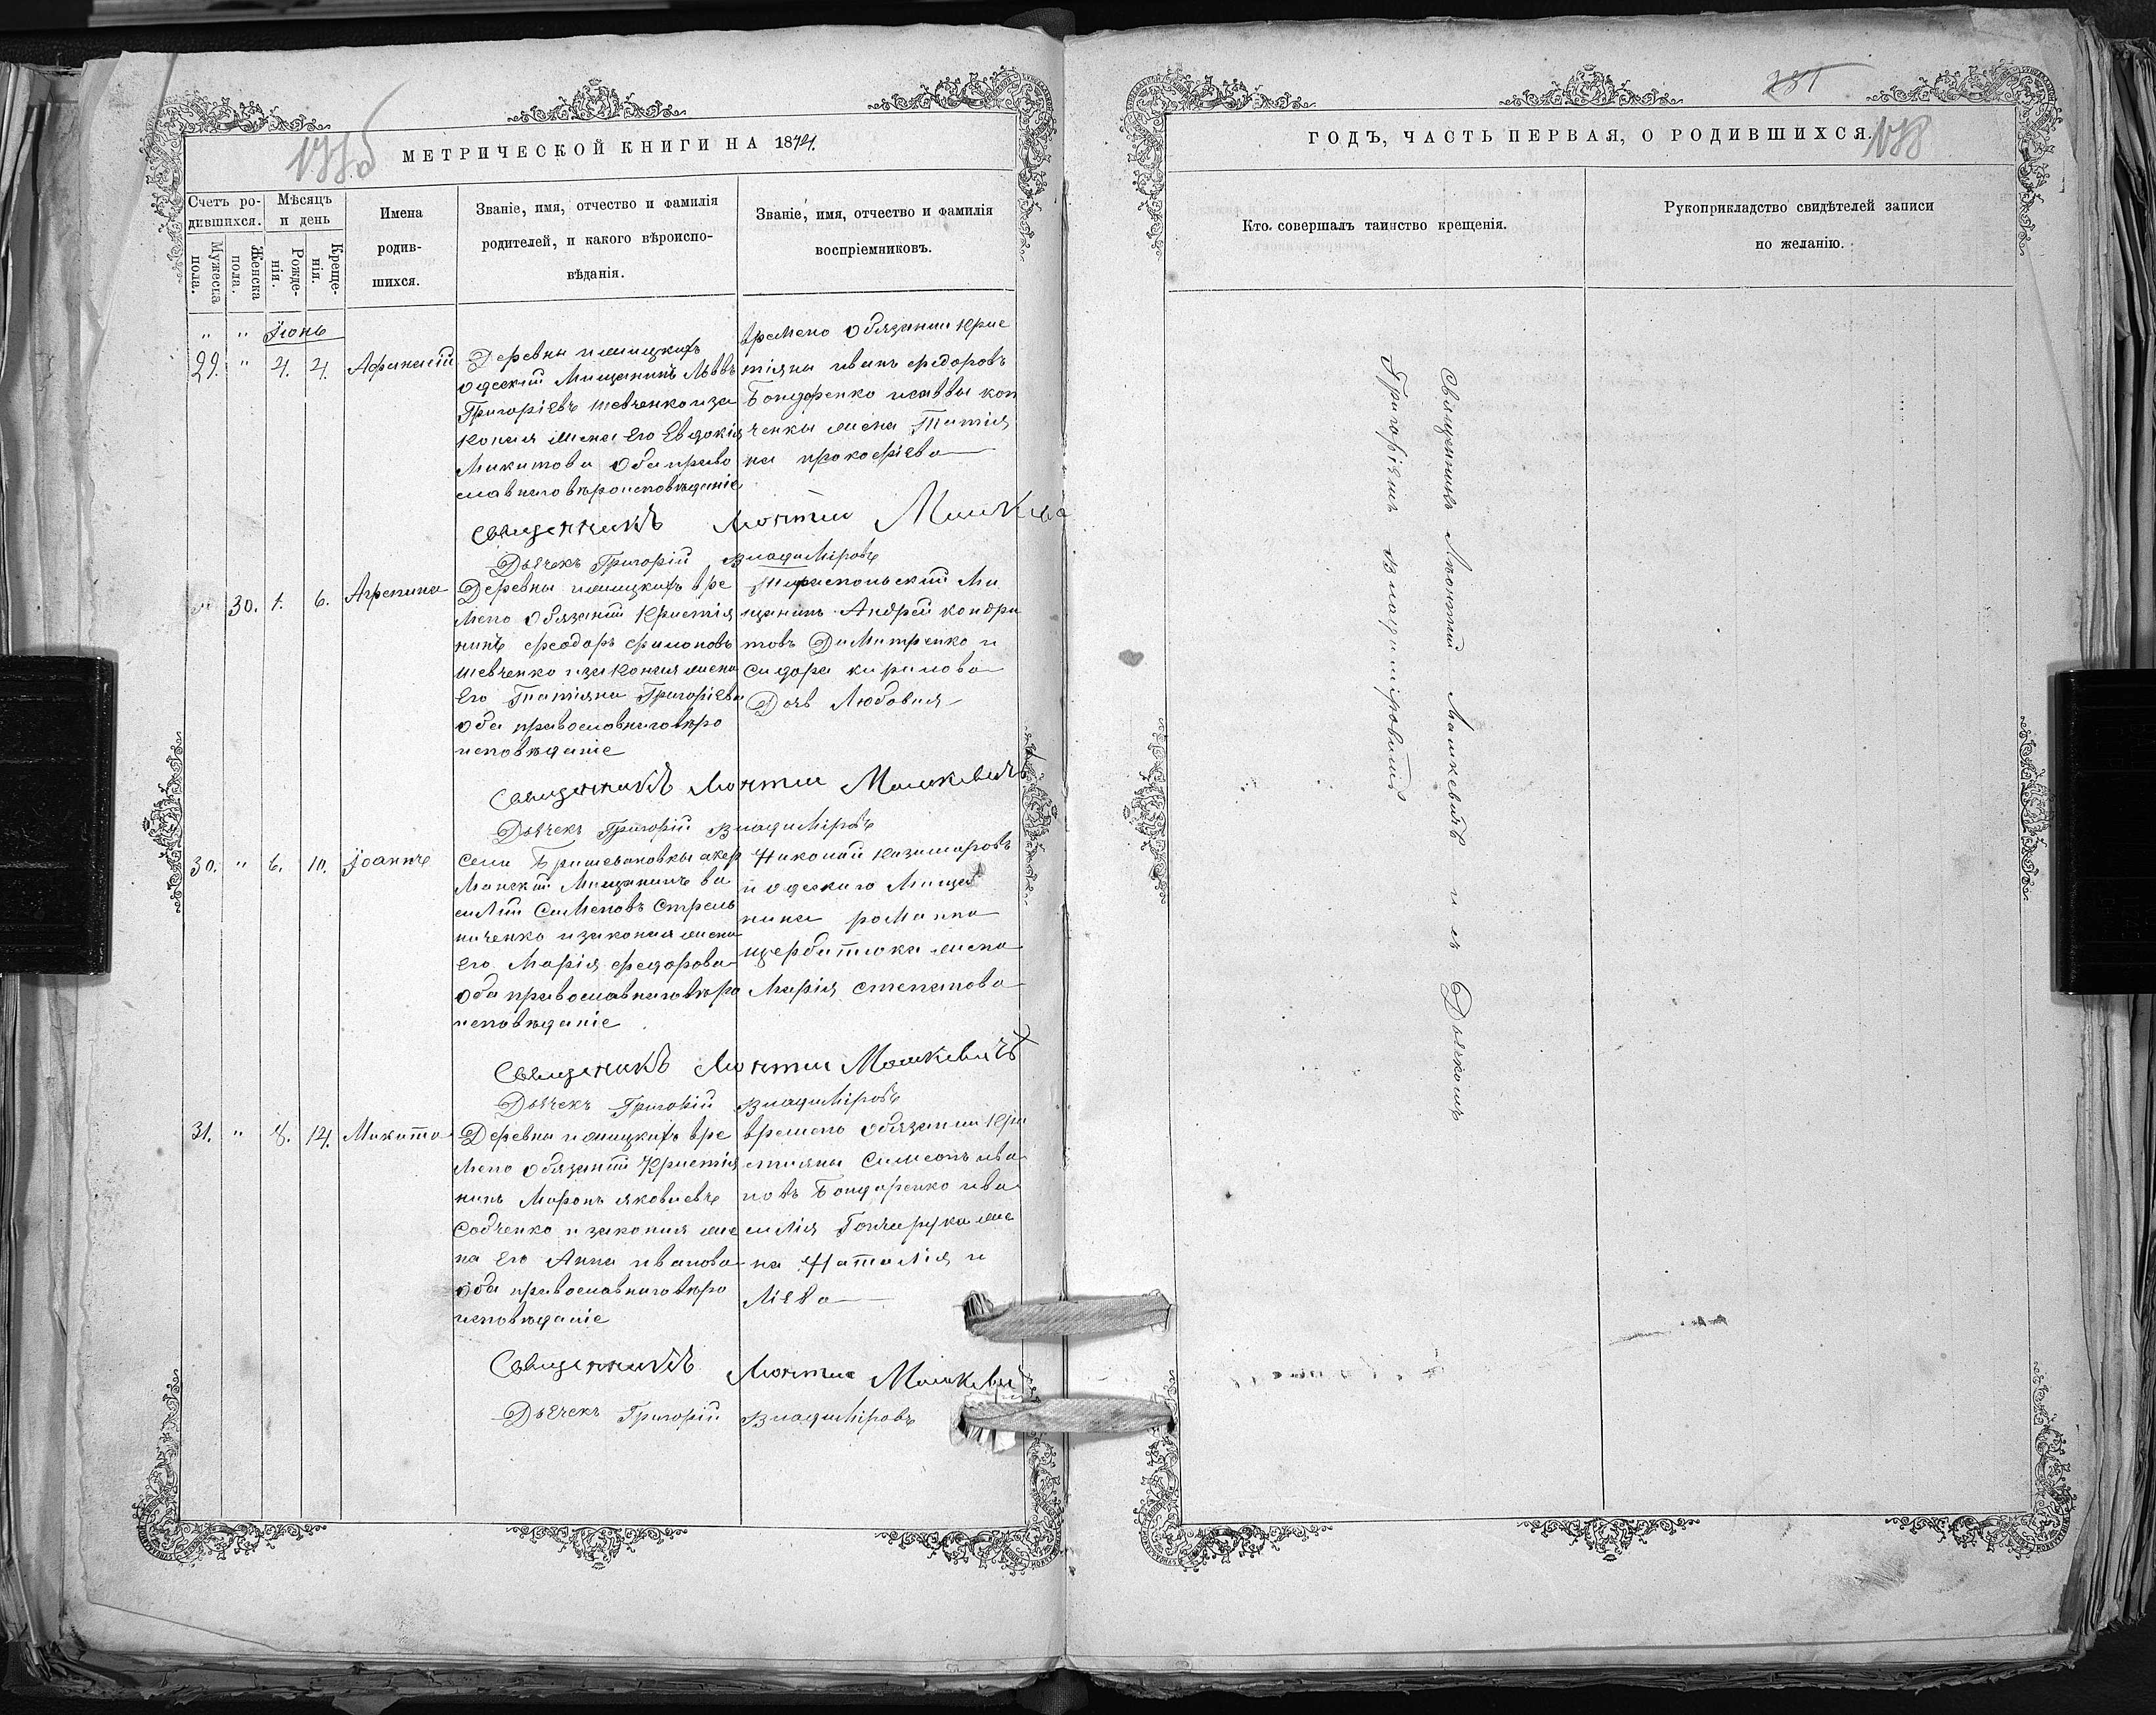 МЕТРИЧЕСКОЙ КНИГИ НА 1874.
Счетъ ро-
дившихся.
Мужеска
пола.
Женска
пола.
Мѣсяцъ
и день
Рожде-
нія.
Креще-
нія.
Имена
родив-
шихся.
Званіе, имя, отчество и фамилія
родителей, и какого вѣроиспо-
вѣданія.
Званіе, имя, отчество и фамилія
воспріемниковъ.
" " Іюнь
29. " 4. 4. Афанасій
Деревни
одескій Мищанинъ Львъ
Григоріевъ шевченко и за
коная жена Его Евдокія
Микитова оба право
славнаго вѣроисповѣданіе
времено обязании крис
тіяна иванъ федоровъ
Бондаренко и саввы кон
ченки жена Татія
на прокофіева
Священникъ Леонтии
Дьячекъ Григорій Владиміровъ
30. 1. 6. Агрепина
Деревни вре
мено обязаній Кристія
нинъ феодоръ филоновъ
шевченко и законая жена
Его Татіяна Григоріева
оба православнаго вѣро
исповѣданіе
Тираспольскій Ми
щанинъ Андрей кондра
товъ Димитренко и
сидора кирилова
Дочь Любовия
Священникъ Леонтии Машкевичъ
Дьячекъ Григорій Владиміровъ
30. " 6. 10. Іоаннъ
Села акер
манскій Мищанинъ ва
силій Сименовъ Стрель
ниченко и законая жена
Его Марія федорова
оба православнаго вѣро
исповѣданіе
Николай казимировъ
и одескаго Мища
нина романа
щербатюка жена
Марія степанова
Священикъ Леонтии Машкевичъ
Дьячекъ Григорій Владиміровъ
31. " 8. 14. Микита
Деревни вре
мено обязаній Кристія
нинъ Миронъ яковлевъ
Собченко и законая же
на Его Анна иванова
оба православнаго вѣро
исповѣданіе
времено обязании кри
стияны Симеонъ ива
новъ Бондаренко и ва
силія Гончарука же
на Наталія и
Ліева
Священникъ Леонтии Машкеви
Дьячекъ Григорій Владиміровъ
ГОДЪ, ЧАСТЬ ПЕРВАЯ, О РОДИВШИХСЯ.
231
178
Кто совершалъ таинство крещенія.
Рукоприкладство свидѣтелей записи
по желанію.
Священникъ Леонтий Машкевичъ и съ Дьячкомъ
Григоріемъ